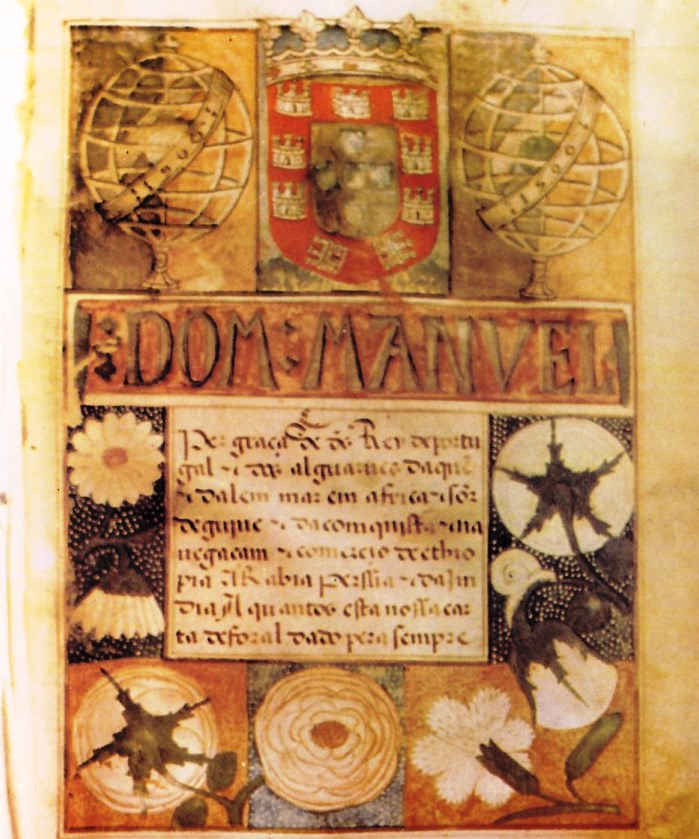 : DOM : MANVEL
Per graça de ds Rey de portu
gal ⁊ dos alguarues daquē
⁊ dalem mar em africa ⁊ sōr
de guine ⁊ da comquista ⁊ na
uegaçam ⁊ comercio de ethio
pia Arabia persia ⁊ da Jn
dia A quantos esta nossa car
ta de foral dado pera sempre